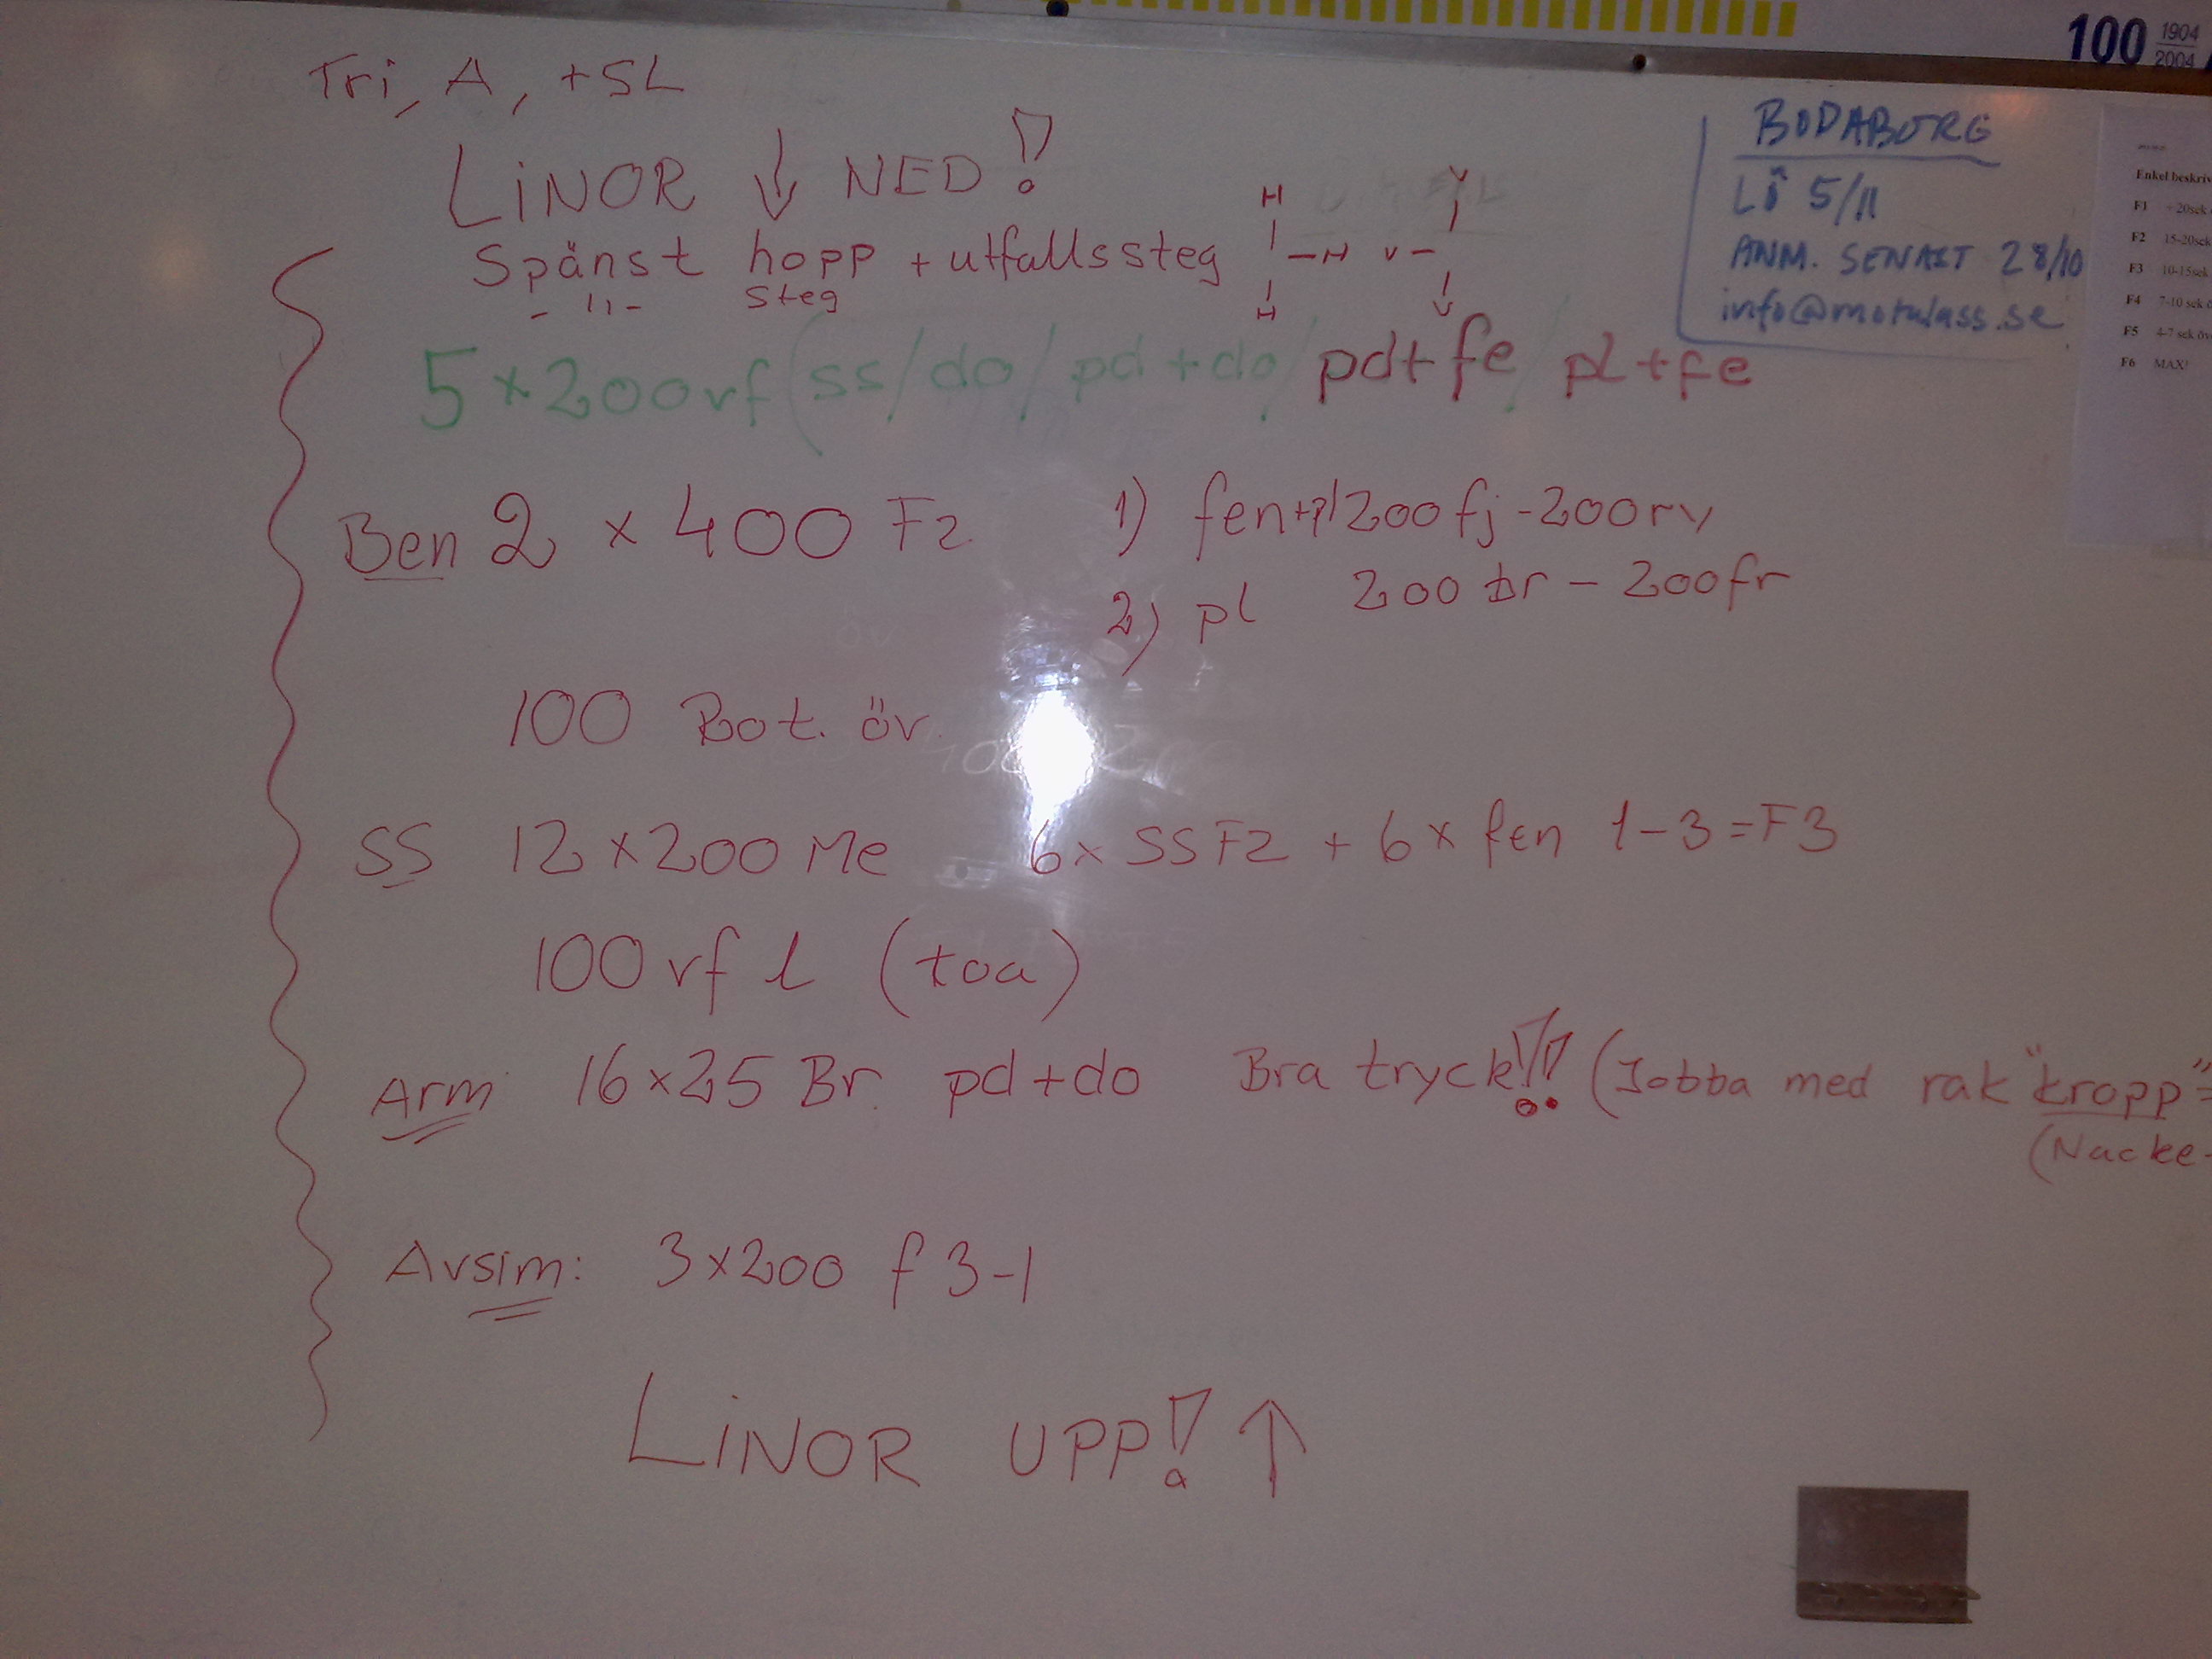 100 1904
2004
Tri, A, +SL
LINOR ↓ NED!
Spänst hopp + utfallssteg
- 11 - steg
H
| - H
|
H
V
|
V -
|
V
5 x 200 vf (ss/do/pd+do/pd+fe/pl+fe
Ben 2 x 400 F2
1) fen+pl 200 fj - 200 ry
2) pl 200 br - 200 fr
100 Bot. öv.
SS 12 x 200 Me 6x SS F2 + 6x fen 1-3=F3
100 vf l (toa)
Arm 16x25 Br. pd+do Bra tryck!! (Jobba med rak "kropp"
(Nacke-
Avsim: 3x200 f 3-1
LINOR UPP! ↑
BODABORG
LÖ 5/11
ANM. SENAST 28/10
info@motulass.se
Enkel beskriv
F1 +20sek
F2 15-20sek
F3 10-15sek
F4 7-10 sek ö
F5 4-7 sek öv
F6 MAX!